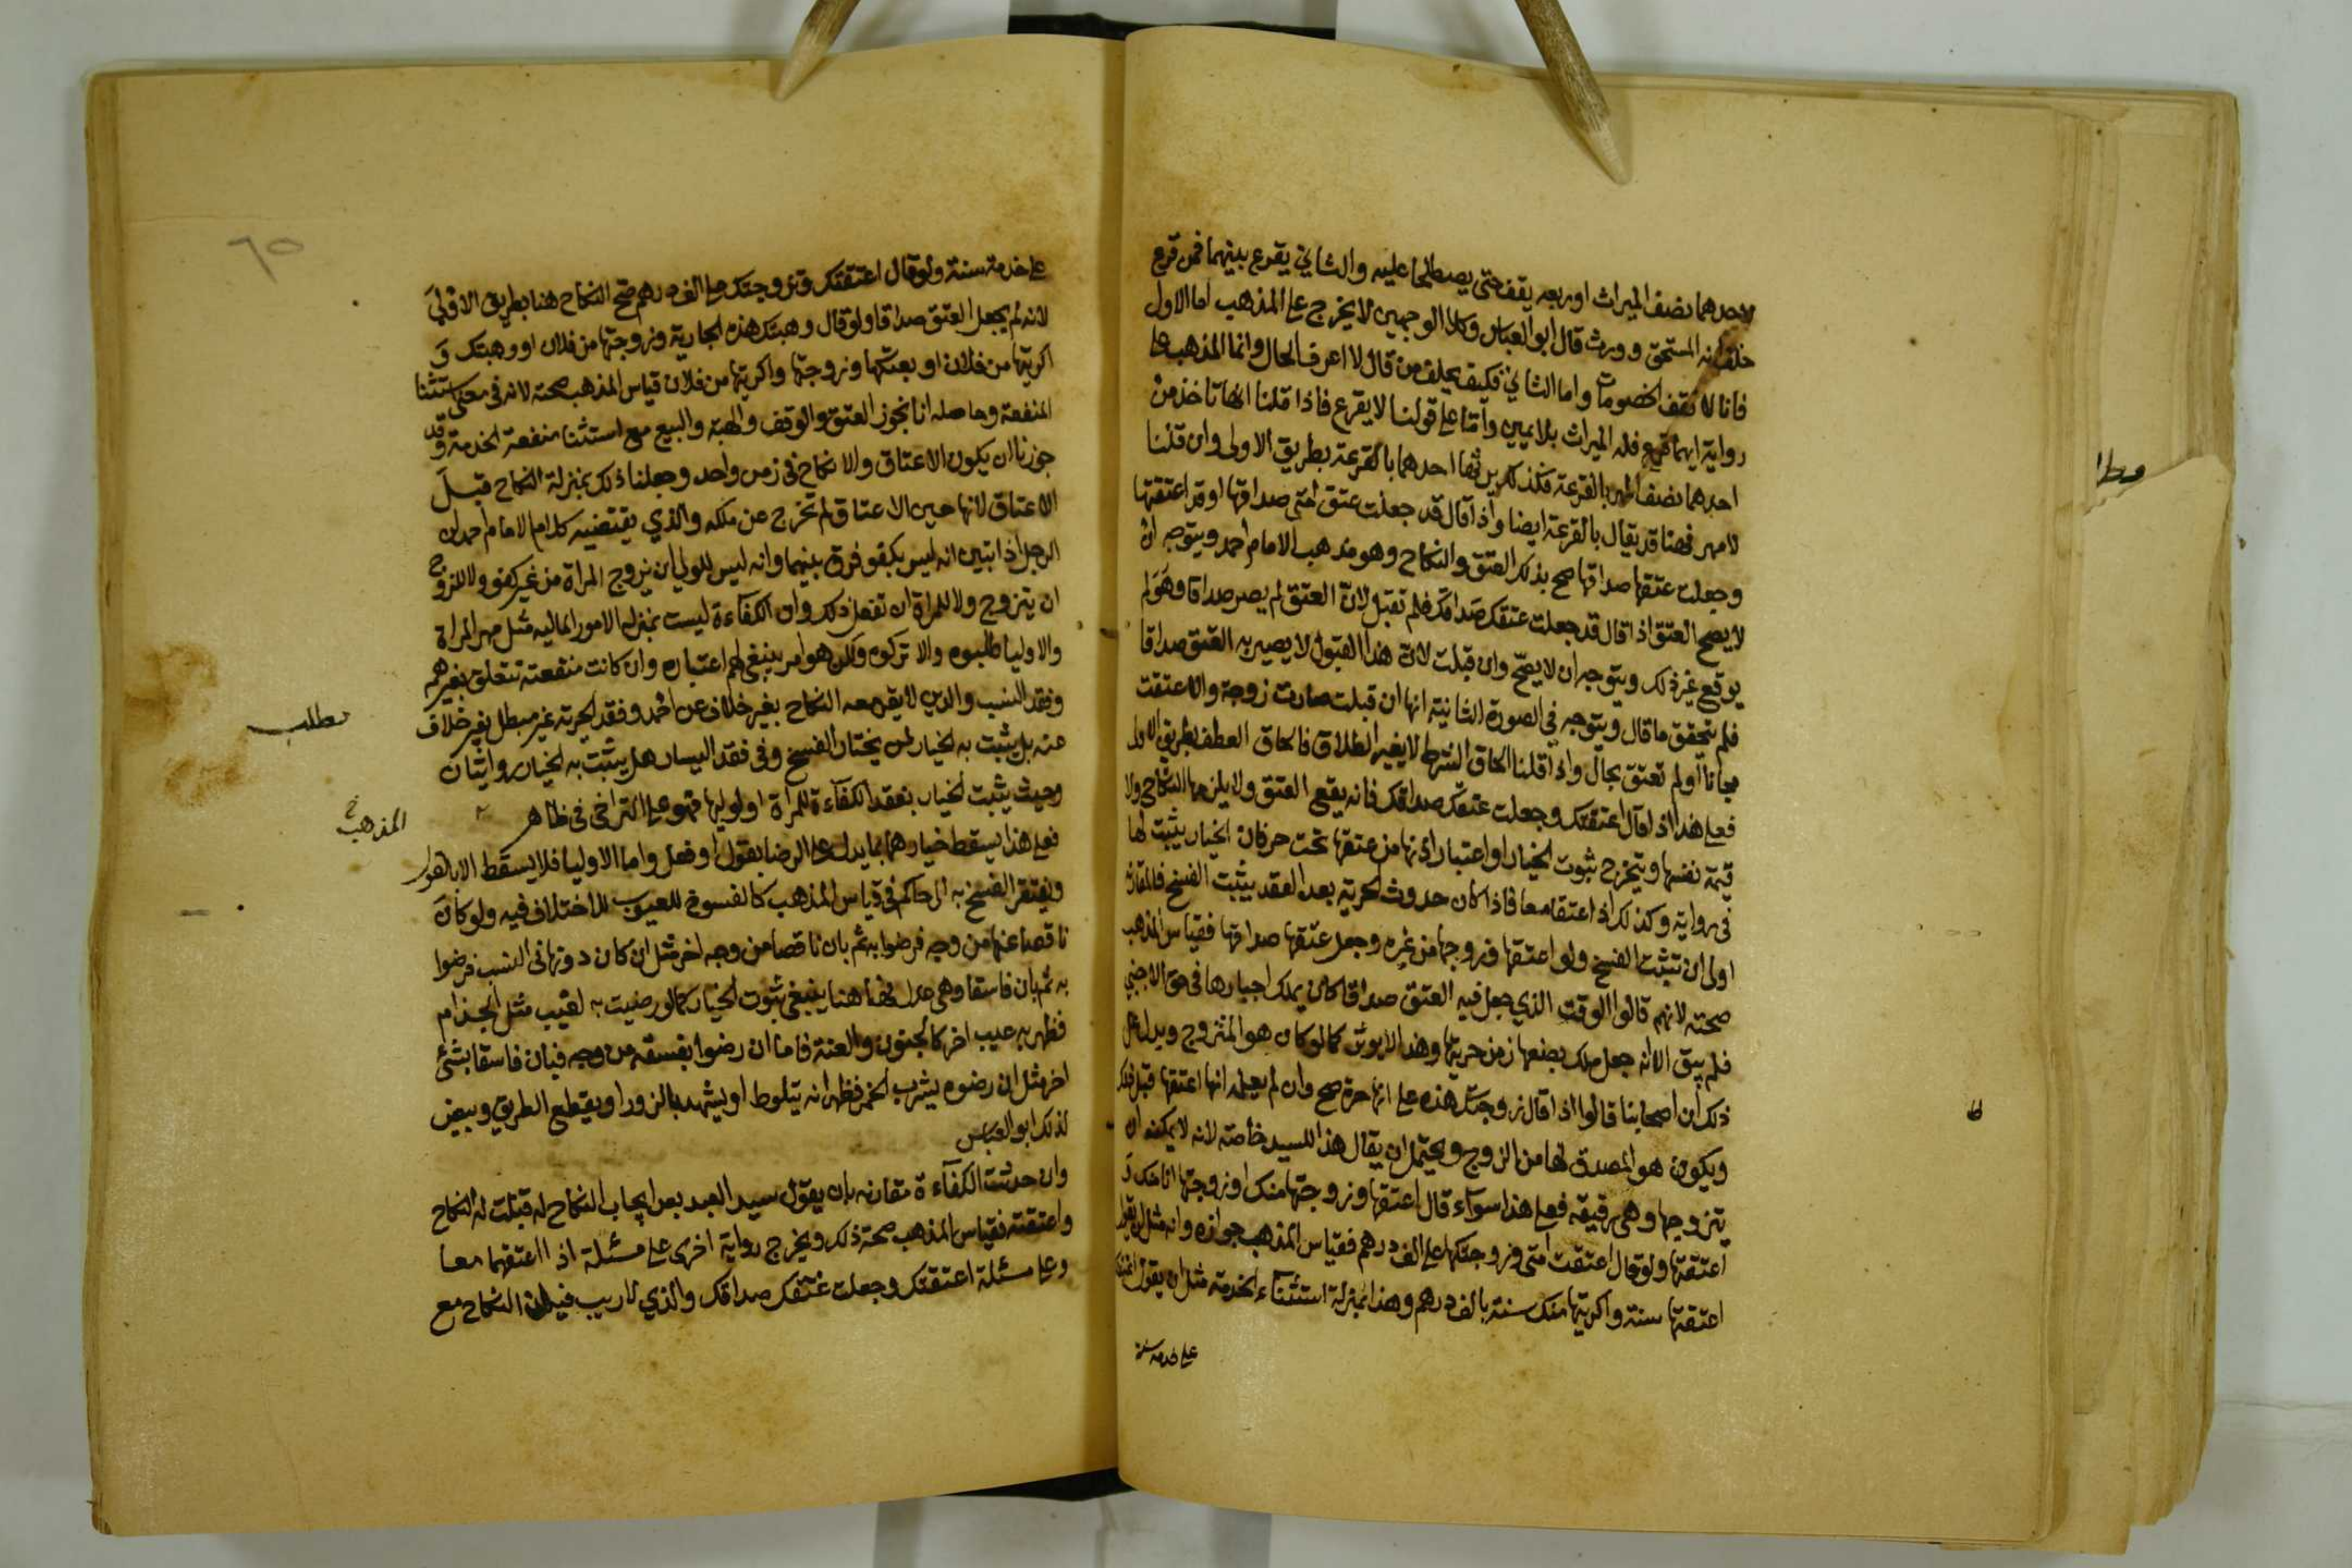 لاحدهما نصف الميراث اوربعه يقف حتى يصطلحا عليه والثاني يقرع بينهما فمن قرع
حلف انه المستحق وورث قال ابوالعباس وكلا الوجهين لا يخرج على المذهب اما الاول
فانا لا نقف الخصومات واما الثاني فكيف يحلف من قال لا اعرف الحال وانما المذهب على
رواية ايهما قرع فله الميراث بلا يمين واما على قولنا لا يقرع فاذا قلنا انها تاخذ من
احدهما نصف المهر بالقرعة فكذلك يرثها احدهما بالقرعة بطريق الاولى وان قلنا
لا مهر فهنا قد يقال بالقرعة ايضا واذا قال قد جعلت عتق امتى صداقها او قد اعتقتها
وجعلت عتقها صداقها صح بذلك العتق والنكاح وهو مذهب الامام احمد ويتوجه ان
لا يصح العتق اذا قال قد جعلت عتقك صداقك فلم تقبل لان العتق لم يصر صداقا وهو لم
يوقع غير ذلك ويتوجه ان لا يصح وان قبلت لان هذا القبول لا يصير به العتق صداقا
فلم يتحقق ما قال ويتوجه في الصورة الثانية انها ان قبلت صارت زوجة والا عتقت
مجانا او لم تعتق بحال واذا قلنا الحاق الشرط لا يغير الطلاق فالحاق العطف بطريق الاولى
فعلى هذا اذا قال اعتقتك وجعلت عتقك صداقك فانه يقع العتق ولا يلزمها النكاح ولا
قيمة نفسها ويتخرج ثبوت الخيار او اعتبار اذنها من عتقها تحت حر فان الخيار يثبت لها
في رواية وكذلك اذا عتقا معا فاذا كان حدوث الحرية بعد العقد يثبت الفسخ فالمقارنة
اولى ان تثبت الفسخ ولو اعتقها وزوجها من غيره وجعل عتقها صداقها فقياس المذهب
صحته لانهم قالوا الوقت الذي جعل فيه العتق صداقا كان يملك اجبارها في حق الاجنبي
فلم يبق الا انه جعل ملك بضعها زمن حريتها وهذا لا يوثر كما لو كان هو المتزوج ويدل على
ذلك ان اصحابنا قالوا اذا قال زوجتك هذه على انها حرة صح وان لم يعلم انها اعتقها قبل ذلك
ويكون هو المصدق لها من الزوج ويحتمل ان يقال هذا للسيد خاصة لانه لا يمكنه ان
يتزوجها وهي رقيقه فعلى هذا سواء قال اعتقتها وزوجتها منك او زوجتها انا منك و
اعتقتها ولو قال اعتقت امتي وزوجتكها على الف درهم فقياس المذهب جوازه وانه مثل ان يقول
اعتقتها سنة واكريتها منك سنة بالف درهم وهذا بمنزلة استثناء الخدمة مثل ان يقول اعتقتك
على خدمة سنة
ط
مطا
٦٥
على خدمة سنة ولو قال اعتقتك وتزوجتك على الف درهم صح النكاح هنا بطريق الاولى
لانه لم يجعل العتق صداقا ولو قال وهبتك هذه الجارية وزوجتها من فلان او وهبتك و
اكريتها من فلان او بعتكها وزوجتها واكريتها من فلان قياس المذهب صحته لانه في معنى استثنا
المنفعة وحاصله انا نجوز العتق والوقف والهبة والبيع مع استثنا منفعة الخدمة وقد
جوزنا ان يكون الاعتاق والانكاح في زمن واحد وجعلنا ذلك بمنزلة النكاح قبل
الاعتاق لانها حين الاعتاق لم تخرج عن ملكه والذي يقتضيه كلام الامام احمد ان
الرجل اذا تبين انه ليس بكفو فرق بينهما وانه ليس للولي ان يزوج المراة من غير كفو ولا للزوج
ان يتزوج ولا للمراة ان تفعل ذلك وان الكفآءة ليست بمنزلة الامور المالية مثل مهر المراة
والاوليا طلبوه والا تركوه ولكن هو امر ينبغي لهم اعتباره وان كانت منفعته تتعلق بغيرهم
وفقد النسب والدين لا يقر معه النكاح بغير خلاف عن احمد وفقد الحرية غير مبطل بغير خلاف
عنه بل يثبت به الخيار لمن يختار الفسخ وفي فقد اليسار هل يثبت به الخيار روايتان
وحيث يثبت الخيار بفقد الكفآءة للمرأة او لوليها فهو على التراخي في ظاهر
فعلى هذا يسقط خيارهما بما يدل على الرضا بقول او فعل واما الاوليا فلا يسقط الا بالقول
ويفتقر الفسخ به الى حاكم في قياس المذهب كالفسوخ للعيوب للاختلاف فيه ولو كان
ناقصا عنها من وجه فرضوا به ثم بان ناقصا من وجه اخر مثل ان كان دونها في النسب فرضوا
به ثم بان فاسقا وهي عدل فهنا هنا ينبغي ثبوت الخيار كما لو رضيت به لعيب مثل الجذام
فظهر به عيب اخر كالجنون والعنة فاما ان رضوا بفسقه من وجه فبان فاسقا بشئ
اخر مثل ان رضوه يشرب الخمر فظهر انه يتلوط او يشهد بالزور او يقطع الطريق وبيض
لذلك ابوالعباس
وان حدثت الكفآءة مقارنه بان يقول سيد العبد بعد ايجاب النكاح له قبلت له النكاح
واعتقته فقياس المذهب صحة ذلك ويخرج رواية اخرى على مسئلة اذا اعتقهما معا
وعلى مسئلة اعتقتك وجعلت عتقك صداقك والذي لا ريب فيه ان النكاح مع
مطلب
المذهب